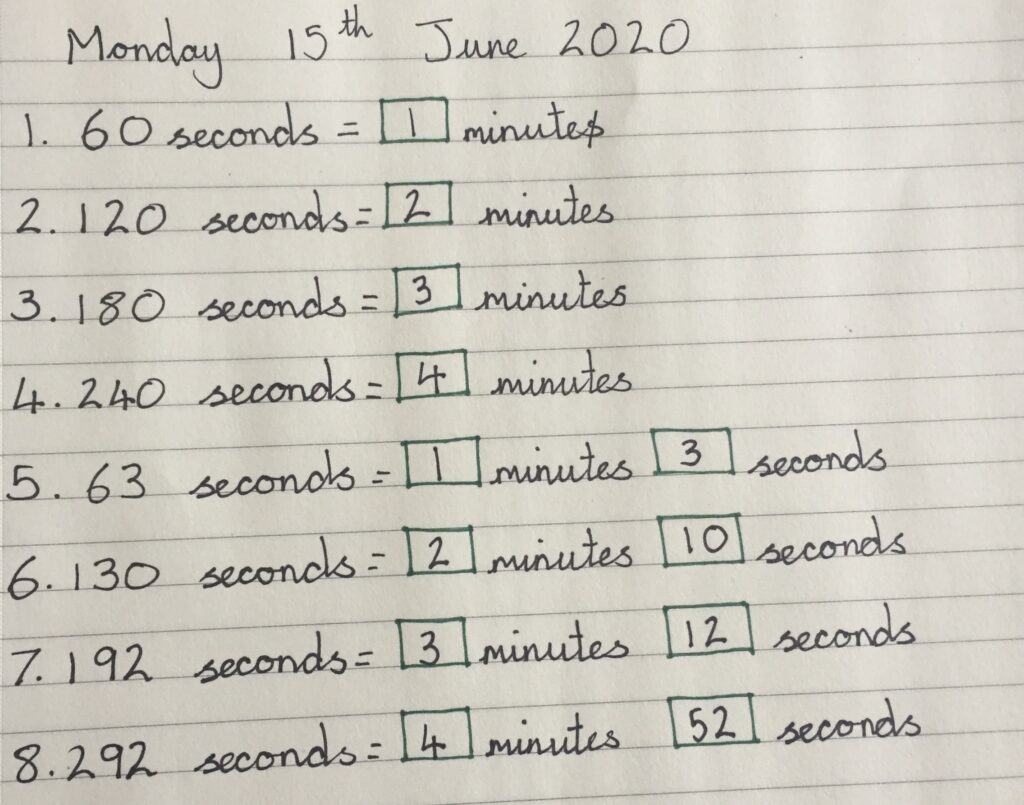 Monday 15th June 2020
1. 60 seconds = 1 minutes
2. 120 seconds = 2 minutes
3. 180 seconds = 3 minutes
4. 240 seconds = 4 minutes
5. 63 seconds = 1 minutes 3 seconds
6. 130 seconds = 2 minutes 10 seconds
7. 192 seconds = 3 minutes 12 seconds
8. 292 seconds = 4 minutes 52 seconds